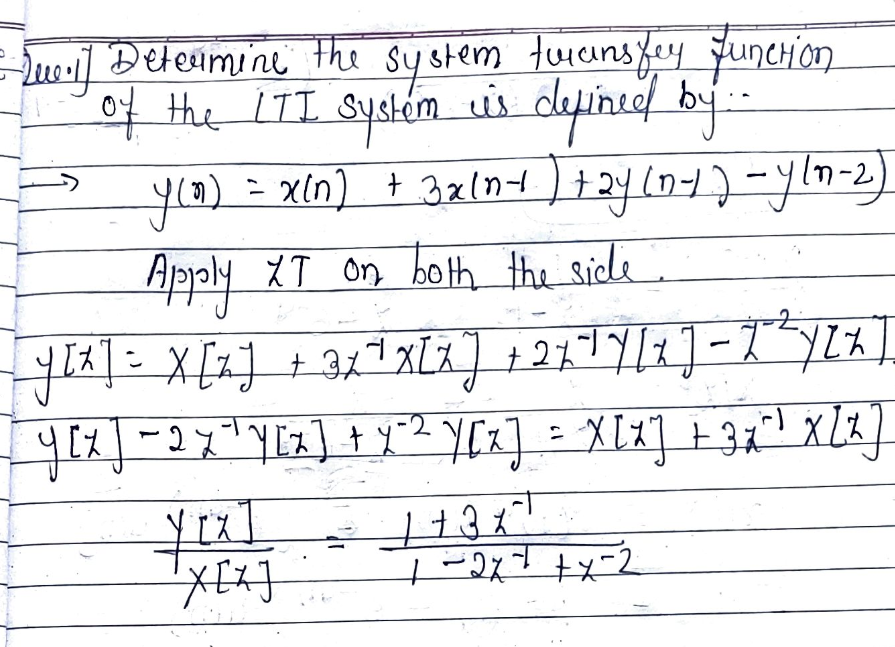 Que.1] Determine the system transfer function
of the LTI system is defined by :-
→ y(n) = x(n) + 3x(n-1) + 2y(n-1) - y(n-2)
Apply ZT on both the side.
y[z] = X[z] + 3z⁻¹X[z] + 2z⁻¹Y[z] - z⁻²Y[z].
y[z] - 2z⁻¹Y[z] + z⁻²Y[z] = X[z] + 3z⁻¹X[z]
Y[z] = 1 + 3z⁻¹
X[z] 1 - 2z⁻¹ + z⁻²